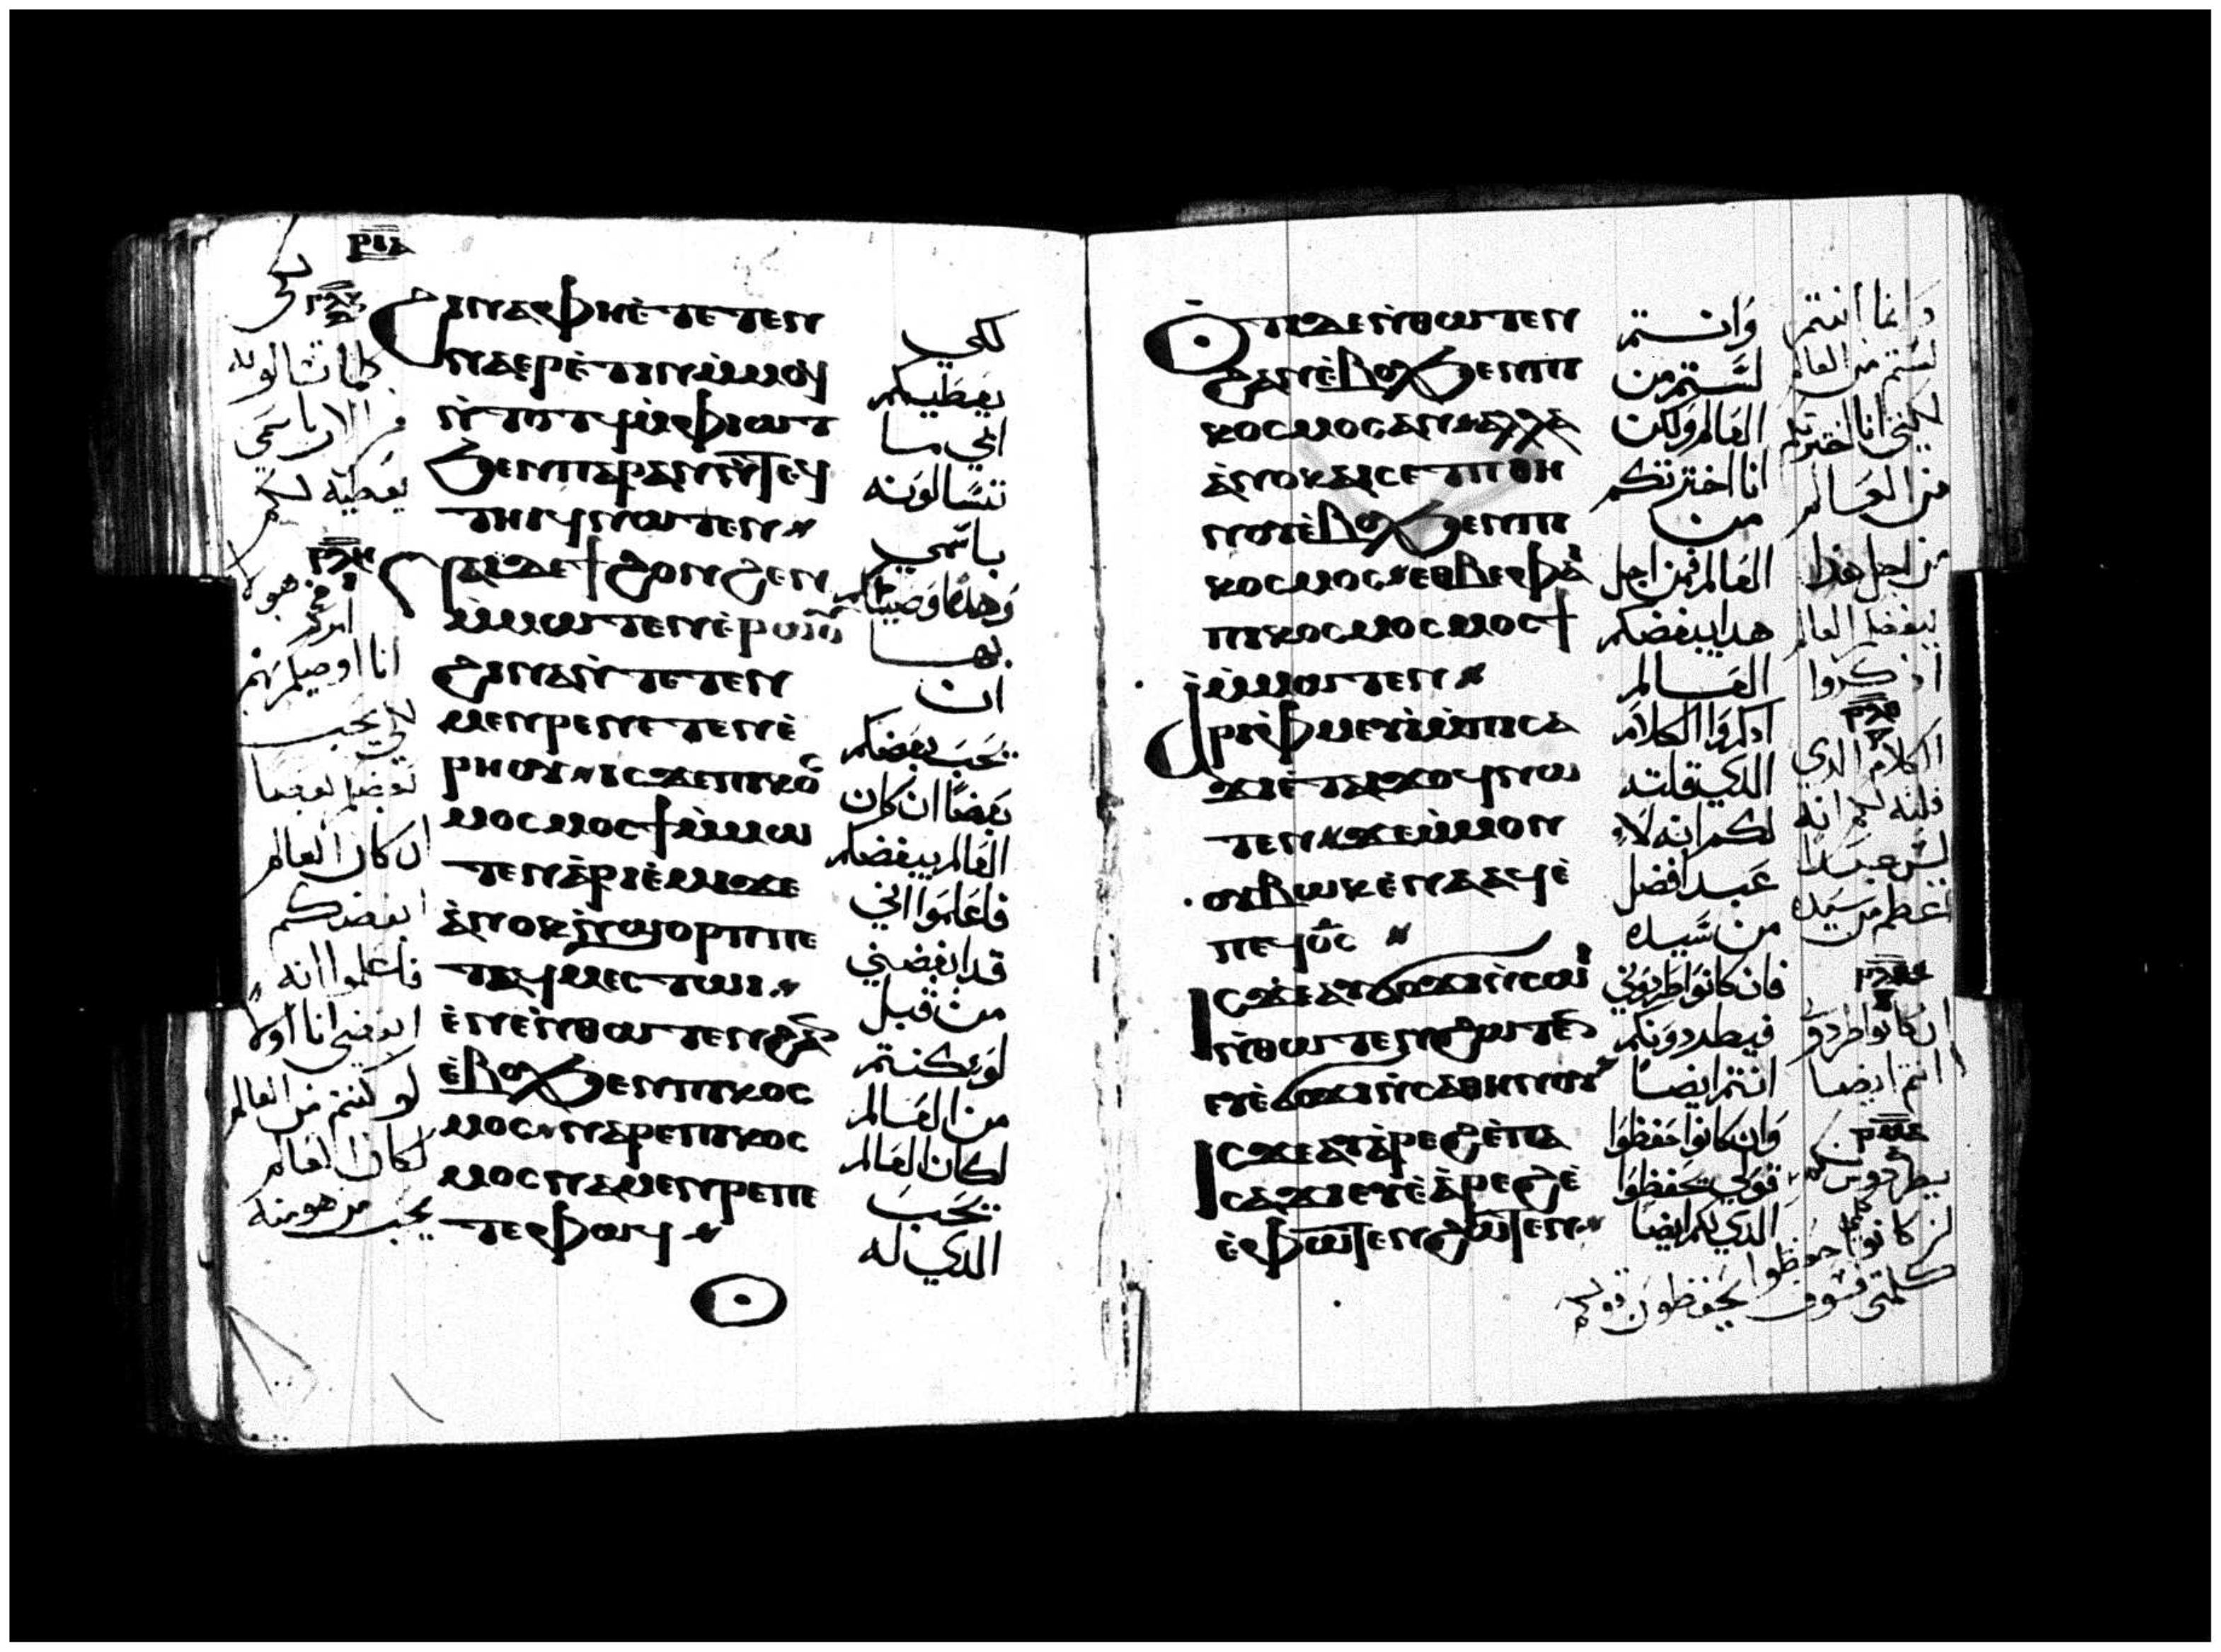 ⲣⲓⲁ
ϩⲓⲛⲁ ⲫⲏ ⲉ̀ⲧⲉⲧⲉⲛ
ⲛⲁⲉⲣⲉ̀ⲧⲓⲛ ⲙ̀ⲙⲟϥ
ⲛ̀ⲧⲟⲧϥ ⲙ̀ⲫⲓⲱⲧ
ϧⲉⲛ ⲡⲁⲣⲁⲛ ⲛ̀ⲧⲉϥ
ⲧⲏⲓϥ ⲛⲱⲧⲉⲛ
ⲛⲁⲓ ⲇⲉ ϯϩⲟⲛϩⲉⲛ
ⲙ̀ⲙⲱⲧⲉⲛ ⲉ̀ⲣⲱⲟⲩ
ϩⲓⲛⲁ ⲛ̀ⲧⲉⲧⲉⲛ
ⲙⲉⲛⲣⲉ ⲛⲉⲧⲉⲛⲉ̀
ⲣⲏⲟⲩ ⲓⲥϫⲉ ⲡⲓⲕⲟ
ⲥⲙⲟⲥ ⲙⲟⲥϯ ⲙ̀ⲙⲱ
ⲧⲉⲛ ⲁ̀ⲣⲓⲉ̀ⲙⲓ ϫⲉ
ⲁ̀ⲛⲟⲕ ⲛ̀ϣⲟⲣⲡ ⲡⲉ
ⲧⲁϥⲙⲉⲥⲧⲱⲓ
ⲉ̀ⲛⲉ ⲛ̀ⲑⲱⲧⲉⲛ ϩⲁⲛ
ⲉ̀ⲃⲟⲗ ϧⲉⲛ ⲡⲓⲕⲟⲥ
ⲙⲟⲥ ⲛⲁⲣⲉ ⲡⲓⲕⲟⲥ
ⲙⲟⲥ ⲛⲁⲙⲉⲛⲣⲉ ⲡⲉ
ⲧⲉ ⲫⲱϥ
لكي
يعطيكم
ابي ما
تسالونه
باسمي
وهذا اوصيتكم
بها
ان
يحب بعضكم
بعضا ان كان
العالم يبغضكم
فاعلموا اني
قد ابغضني
من قبل
لو كنتم
من العالم
لكان العالم
يحب
الذي له
كلما تسالونه
باسمي
يعطيه لكم
انا اوصيكم بهم
لكي يحب
بعضكم بعضا
ان كان العالم
ابغضكم
فاعلموا انه
ابغضني انا اولا
لو كنتم من العالم
لكان العالم
يحب من هو منه
ⲟⲧⲓ ⲇⲉ ⲛ̀ⲑⲱⲧⲉⲛ
ϩⲁⲛⲉ̀ⲃⲟⲗ ϧⲉⲛ ⲡⲓ
ⲕⲟⲥⲙⲟⲥ ⲁⲛ ⲁⲗⲗⲁ
ⲁ̀ⲛⲟⲕ ⲁⲓⲥⲉⲧⲡ ⲑⲏ
ⲛⲟⲩ ⲉ̀ⲃⲟⲗ ϧⲉⲛ ⲡⲓ
ⲕⲟⲥⲙⲟⲥ ⲉⲑⲃⲉ ⲫⲁⲓ
ⲡⲓⲕⲟⲥⲙⲟⲥ ⲙⲟⲥϯ
ⲙ̀ⲙⲱⲧⲉⲛ
ⲁⲣⲓⲫⲙⲉⲩⲓ̀ ⲙ̀ⲡⲓⲥⲁ
ϫⲓ ⲉ̀ⲧⲁⲓϫⲟϥ ⲛⲱ
ⲧⲉⲛ ϫⲉ ⲙ̀ⲙⲟⲛ
ⲟⲩⲃⲱⲕ ⲉ̀ⲛⲁⲁϥ ⲉ̀
ⲡⲉϥⲟ̅ⲥ̅
ⲓⲥϫⲉ ⲁⲩϭⲟϫⲓ ⲛ̀ⲥⲱⲓ
ⲛ̀ⲑⲱⲧⲉⲛ ϩⲱⲧⲉⲛ
ⲉⲩⲉ̀ϭⲟϫⲓ ⲛ̀ⲥⲁ ⲑⲏⲛⲟⲩ
ⲓⲥϫⲉ ⲁⲩⲁ̀ⲣⲉϩ ⲉ̀ⲡⲁ
ⲥⲁϫⲓ ⲉⲩⲉ̀ⲁ̀ⲣⲉϩ ⲉ̀
ⲉ̀ⲫⲱⲧⲉⲛ ϩⲱⲧⲉⲛ
وانتم
لستم من
العالم ولكن
انا اخترتكم
من
العالم فمن اجل
هذا يبغضكم
العالم
اذكروا الكلام
الذي قلته
لكم انه لا
عبد افضل
من سيده
فان كانوا طردوني
فيطردونكم
انتم ايضا
وان كانوا حفظوا
قولي يحفظوا
الذي لكم ايضا
وانما انتم
لستم من العالم
لكني انا اخترتكم
من العالم
من اجل هذا
يبغضكم العالم
اذكروا
الكلام الذي
قلته لكم انه
ليس عبدا
اعظم من سيده
ان كانوا طردوني
انتم ايضا
يطردونكم
ان كانوا حفظوا
كلمتي فسوف يحفظون قولكم